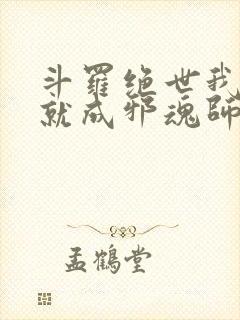 斗羅绝世我
就成邪魂師
孟鶴堂